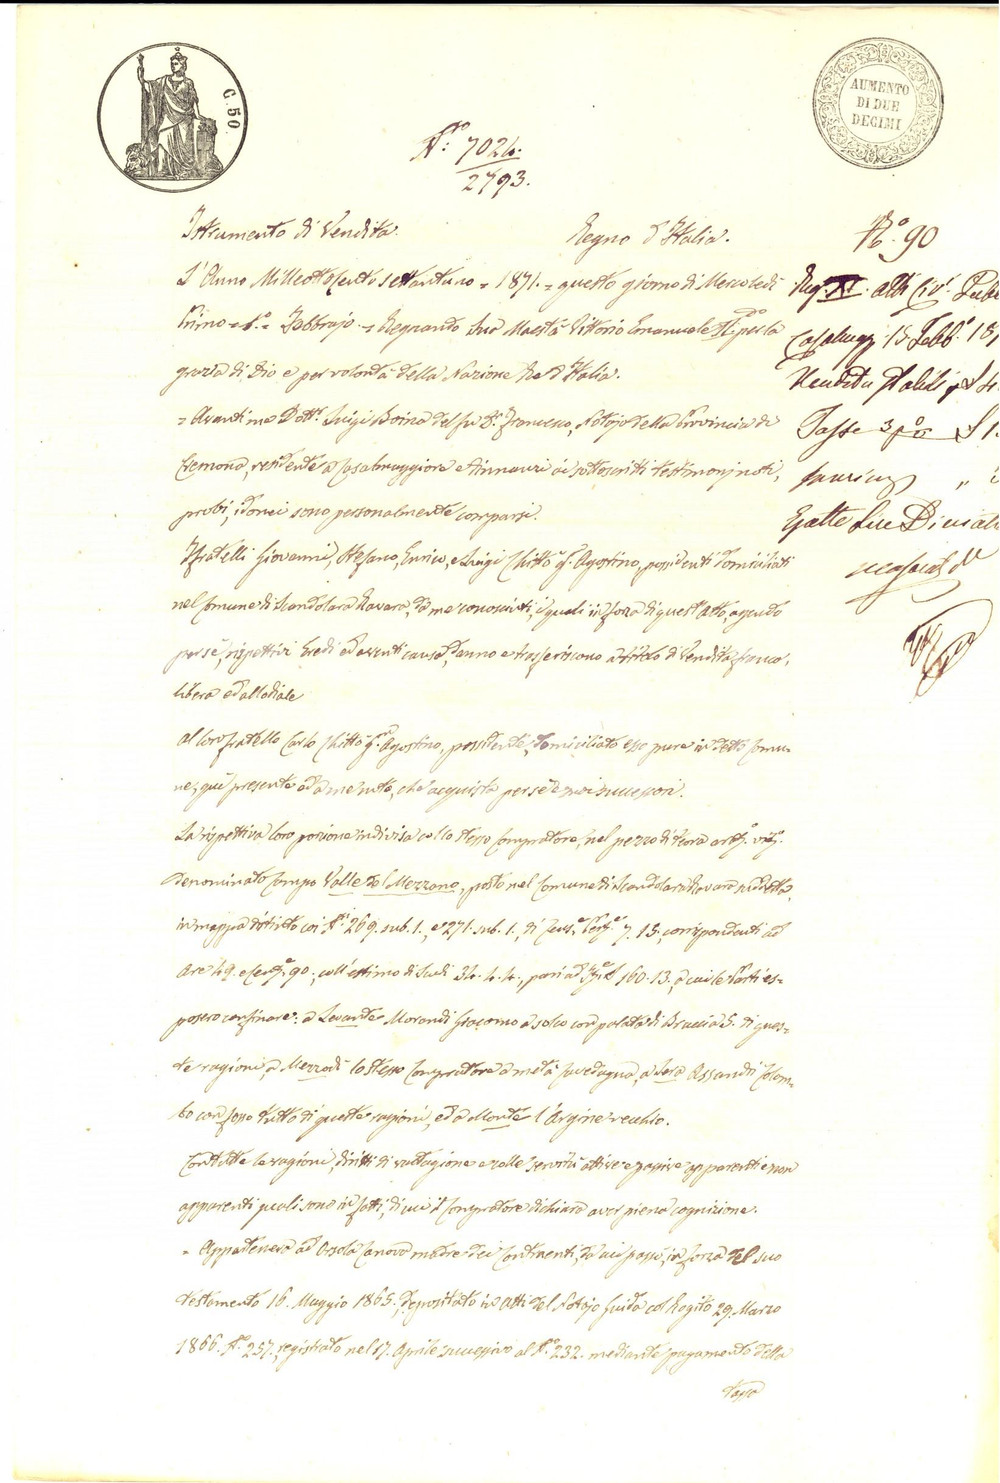 C. 50.
AUMENTO
DI DUE
DECIMI
N.° 7024.
2793.
Istrumento di Vendita.
Regno d'Italia.
N.° 90
L'Anno Milleottocentosettantuno = 1871. = questo giorno di Mercoledì
Primo = 1.° = Febbrajo. = Regnando Sua Maestà Vittorio Emanuele II.do per la
grazia di Dio e per volontà della Nazione Re d'Italia.
= Avanti me Dott.r Luigi Boina del fu D.r Francesco, Notajo della Provincia di
Cremona, residente a Casalmaggiore e dinnanzi ai sottoscritti testimonj noti,
probi, idonei sono personalmente comparsi.
Reg. XI. atti Civ.
Casalmagg. 15 Febb.o 18
Vendita Stabili p
Tasse 3 p%
Esatte Lire Dieciotto
I fratelli Giovanni, Stefano, Enrico, e Luigi Chittò q.m Agostino, possidenti domiciliati
nel Comune di Scandolara Ravara, da me conosciuti, i quali in forza di quest'atto, agendo
per sè, rispettivi Eredi ed aventi causa, danno e trasferiscono a titolo di Vendita franca,
libera ed allodiale
Al loro fratello Carlo Chittò q.m Agostino, possidente, domiciliato esso pure in detto Comu-
ne, quì presente ed a me noto, che acquista per sè e suoi successori.
La rispettiva loro porzione indivisa collo stesso Compratore, nel pezzo di terra arat.° vit.°
denominato Campo Valle del Mezzano, posto nel Comune di Scandolara Ravara suddetto,
in mappa distinto coi N.i 269. sub. 1., e 271. sub. 1., di Cens.e Pert.e 7. 15., corrispondenti ad
Are 49. e Cent.e 90., coll'estimo di Scudi 34. 4. 4., pari ad It.e L. 160. 13., a cui le Parti es-
posero confinare: a Levante Morandi Giacomo a solco con palata di Braccia 5. di ques-
te ragioni, a Mezzodì lo stesso Compratore a metà cavedagna, a Sera Assandri Colom-
bo con fosso tutto di queste ragioni, ed a Monte l'Argine vecchio.
Con tutte le ragioni, diritti di rustagione e colle servitù attive e passive apparenti e non
apparenti quali sono in fatti, di cui il Compratore dichiara aver piena cognizione.
= Apparteneva ad Orsola Canova madre dei Contraenti, da cui passò, in forza del suo
testamento 16. Maggio 1865., depositato in Atti del Notajo Guida col Rogito 29. Marzo
1866. N.° 257, registrato nel 17. Aprile successivo al N.° 232. mediante pagamento della
tassa